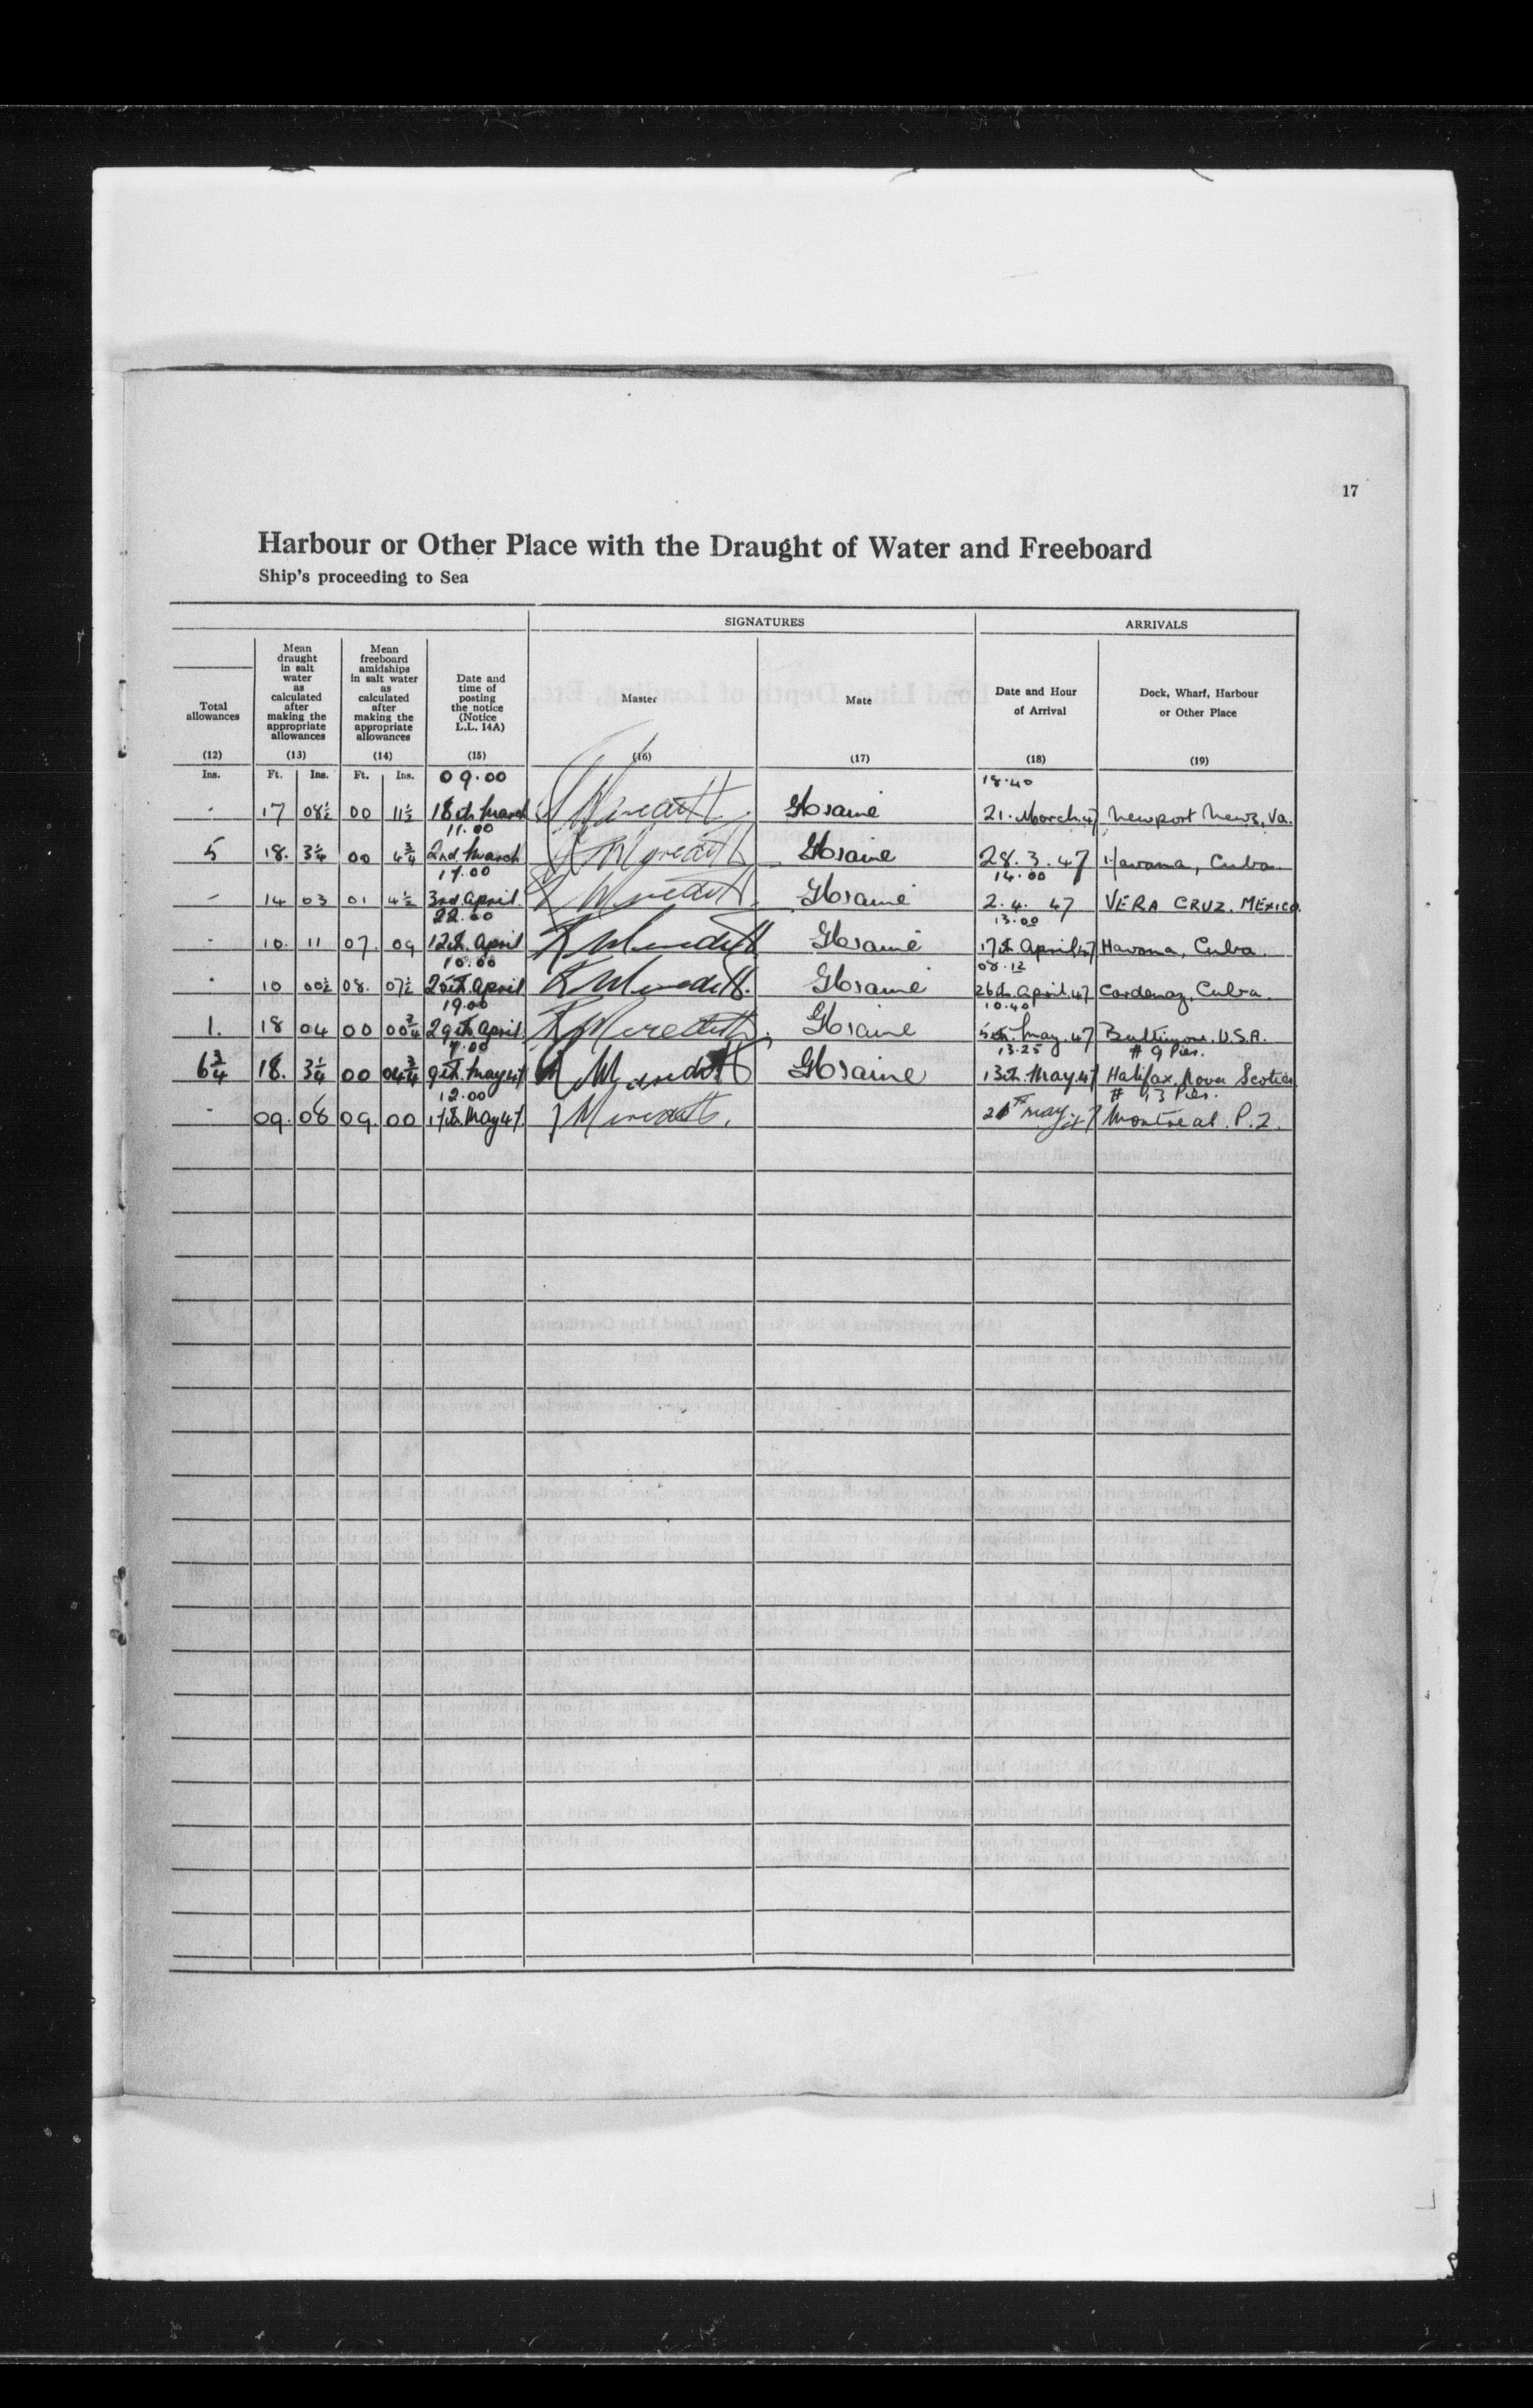 17
Harbour or Other Place with the Draught of Water and Freeboard
Ship's proceeding to Sea
SIGNATURES ARRIVALS
Total allowances (12) Mean draught in salt water as calculated after making the appropriate allowances (13) Mean freeboard amidships in salt water as calculated after making the appropriate allowances (14) Date and time of posting the notice (Notice L.L. 14A) (15) Master (16) Mate (17) Date and Hour of Arrival (18) Dock, Wharf, Harbour or Other Place (19)
Ins. Ft. Ins. Ft. Ins. 09.00 18.40
- 17 08½ 00 11½ 18th March 21. March.47 Newport News. Va.
11.00
5 18. 3¼ 00 4¾ 2nd. March 28.3.47 Havana, Cuba.
17.00 14.00
- 14 03 01 4½ 3rd. April. 2.4. 47 VERA CRUZ. MEXICO.
22.00 13.00
- 10. 11 07. 09 12th. April K Meredith 17th April 47 Havana, Cuba.
10.00 08.12
- 10 00½ 08. 07½ 25th. April K Meredith. 26th. April.47 Cardenaz, Cuba.
19.00 10.40
1. 18 04 00 00¾ 29th April K Meredith. 5th. May. 47 Baltimore. U.S.A.
13.25 # 9 Pier.
6¾ 18. 3¼ 00 04¾ 9th. May 47 Meredith 13th. May.47 Halifax, Nova Scotia
12.00 # Pier.
- 09. 08 09. 00 17th. May 47. Meredith. May 47 Montreal. P.2.